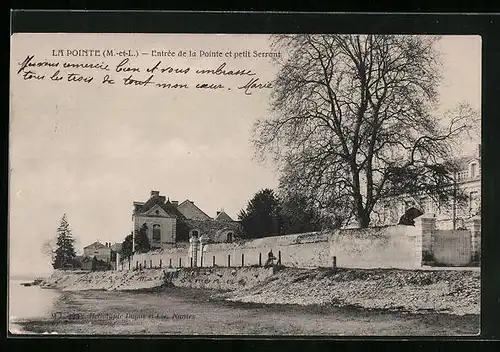 LA POINTE (M.-et-L.) — Entrée de la Pointe et petit Serrant
vous remercie bien et vous embrasse
tous les trois de tout mon cœur. Marie
Héliotypie Dugas et Cie, Nantes